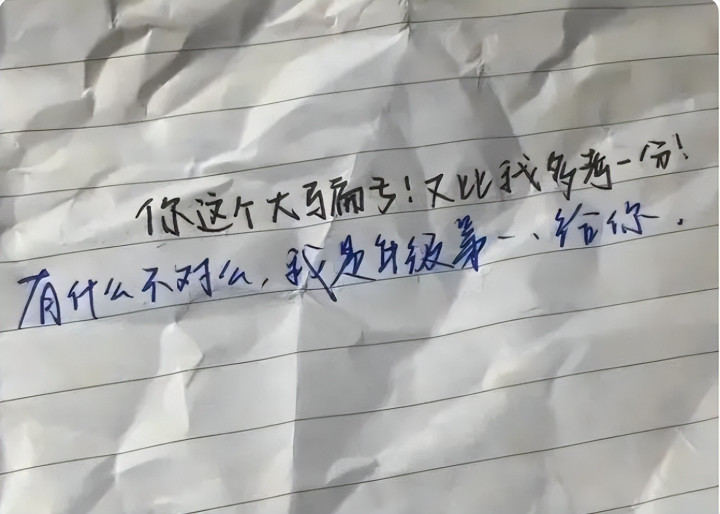 你这个大骗子！又比我多考一分！
有什么不对么，我是年级第一、给你．